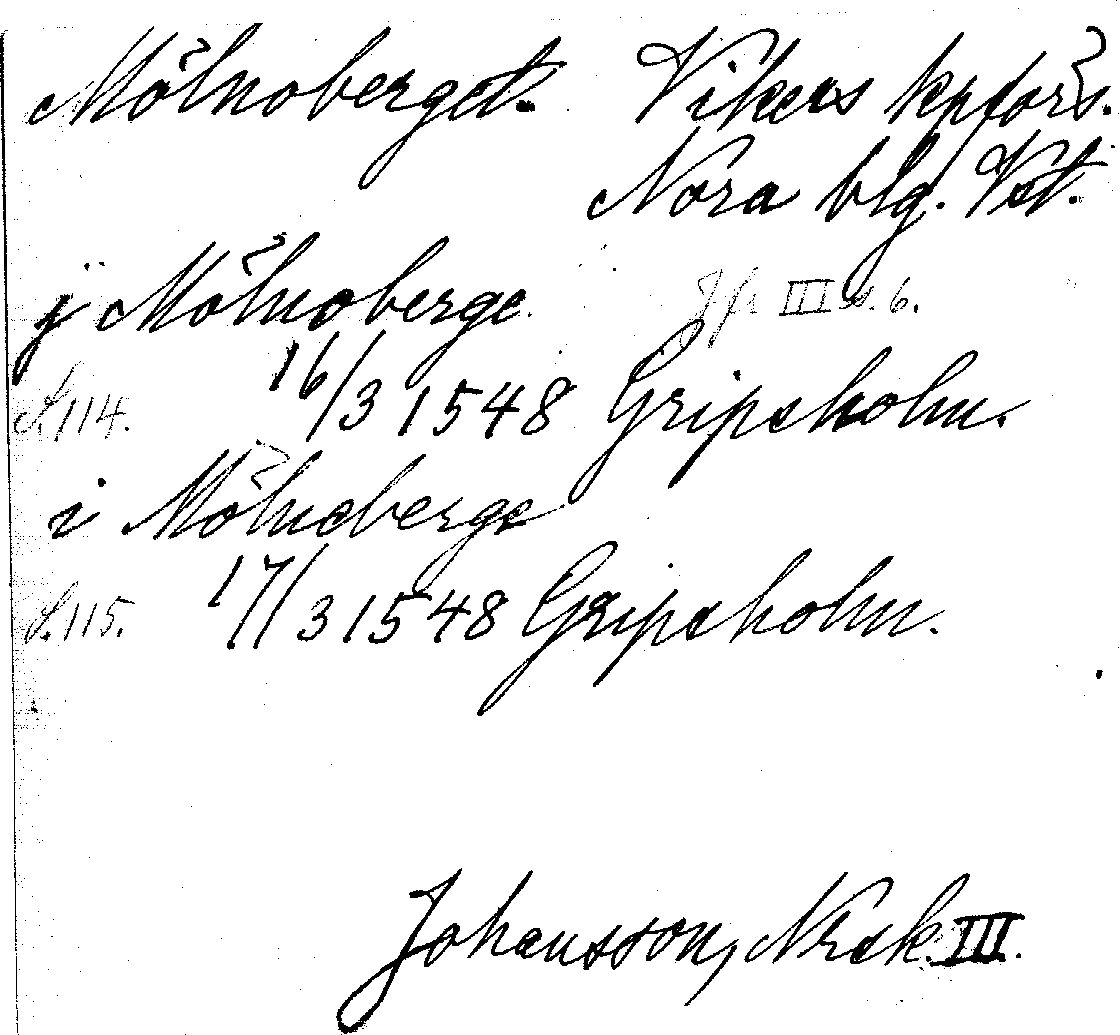 Mölnoberget. Vikers kpförs.
Nora blg. Vst.
j Mölnoberge Jfr III s. 6.
S. 114. 16/3 1548 Gripsholm.
i Mölneberge
S. 115. 17/3 1548 Gripsholm.
Johansson, Nbsk. III.